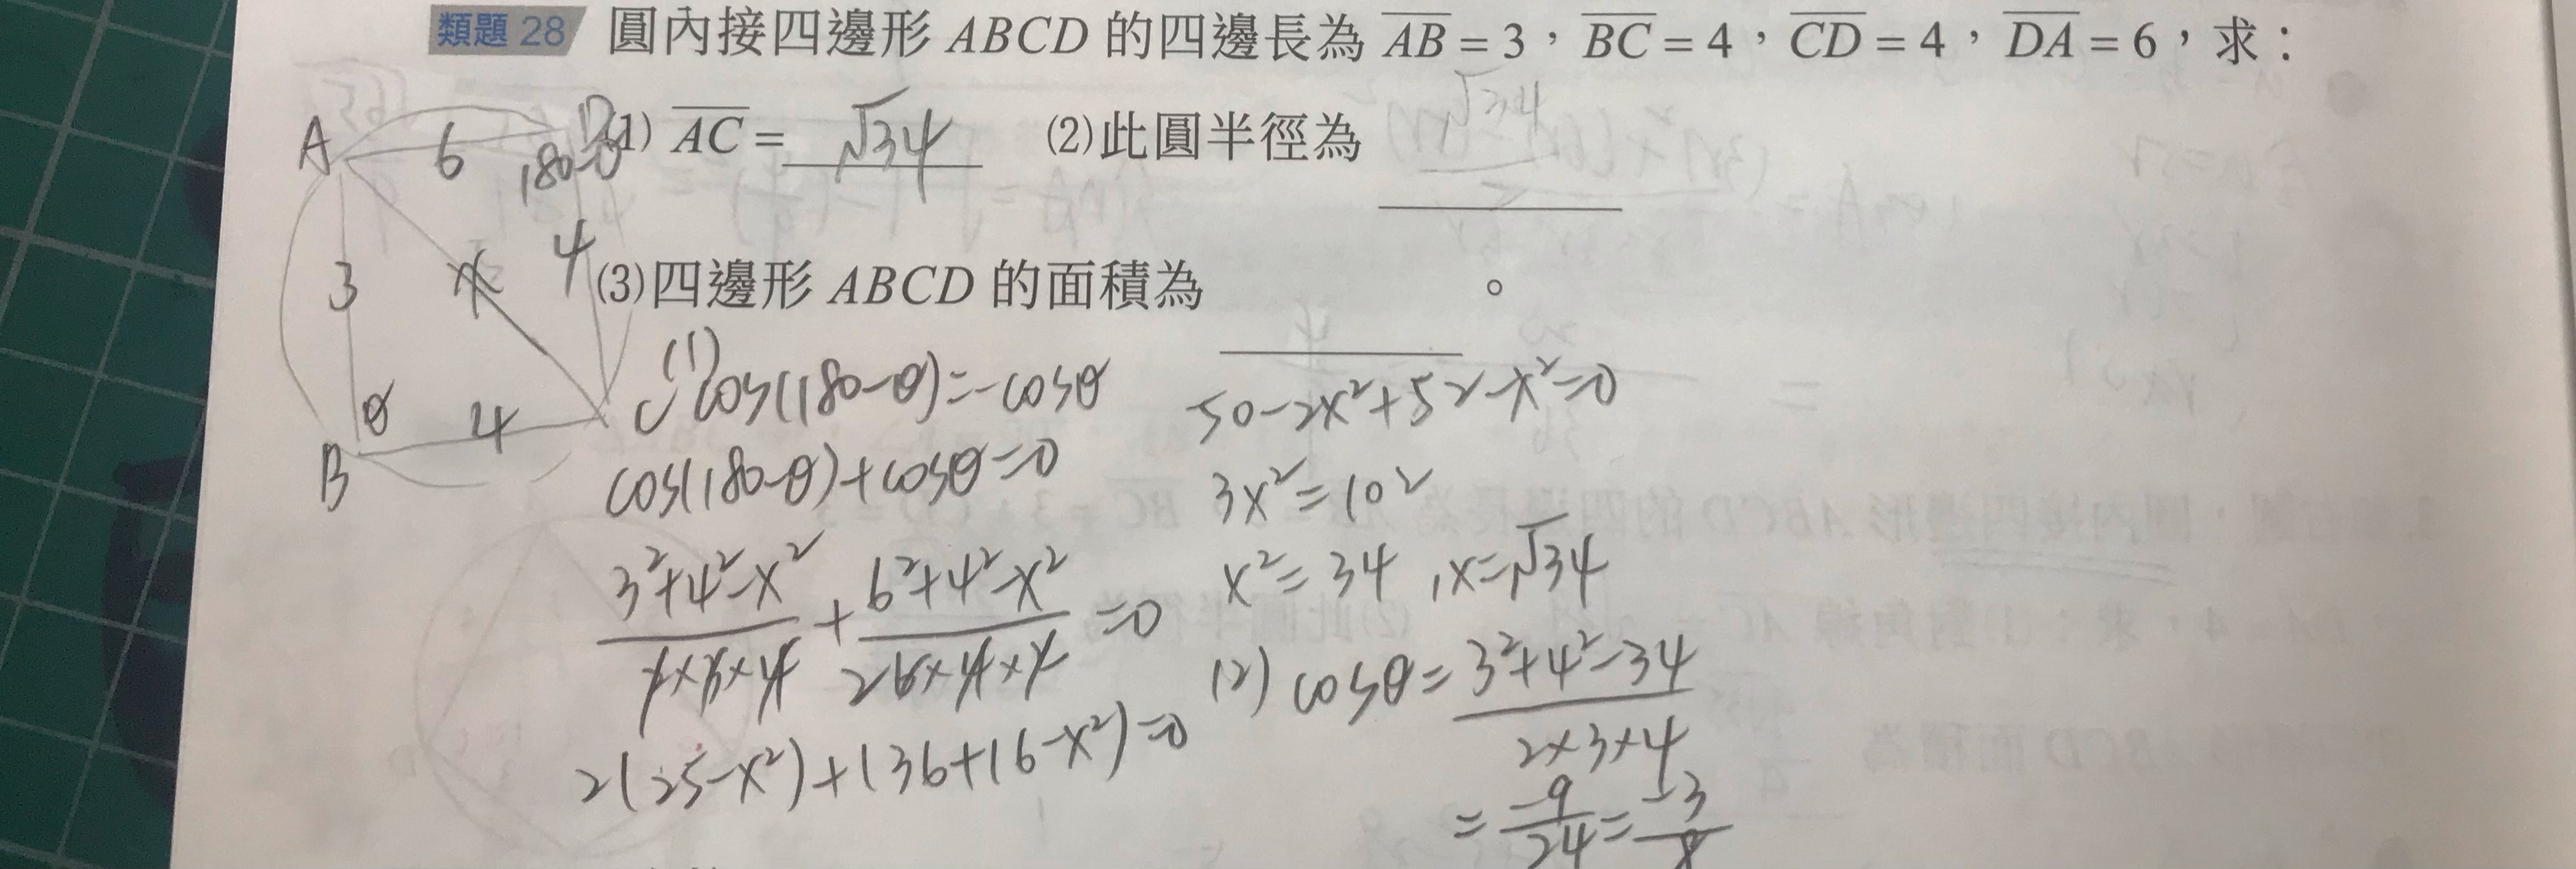 類題 28 圓內接四邊形 ABCD 的四邊長為 AB = 3，BC = 4，CD = 4，DA = 6，求：
(1) AC = √34 (2)此圓半徑為
(3)四邊形 ABCD 的面積為 。
A 6 D
180-θ
3 x 4
B θ 4 C
(1) cos(180-θ)=-cosθ
cos(180-θ)+cosθ=0
3²+4²-x²/2×3×4 + 6²+4²-x²/26×4×2 =0
2(25-x²)+(36+16-x²)=0
50-2x²+52-x²=0
3x²=102
x²=34 , x=√34
(2) cosθ= 3²+4²-34/2×3×4
= -9/24 = -3/8